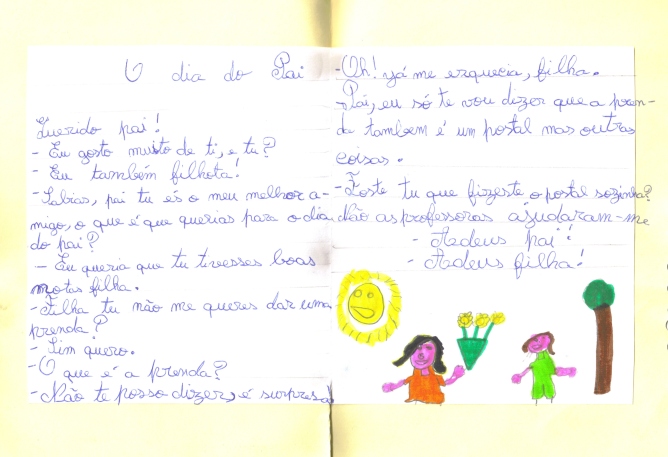 O dia do Pai
Querido pai!
- Eu gosto muito de ti, e tu?
- Eu também filhota!
- Sabias, pai tu és o meu melhor a-
migo, o que é que querias para o dia
do pai?
- Eu queria que tu tivesses boas
notas filha.
- Filha tu não me queres dar uma
prenda?
- Sim quero.
- O que é a prenda?
- Não te posso dizer, é surpresa
- Oh! já me esquecia, filha.
- Pai, eu só te vou dizer que a pren-
da tambem é um postal mas outras
coisas.
- Foste tu que fizeste o postal sozinha?
Não as professoras ajudaram-me
- Adeus pai!
- Adeus filha!